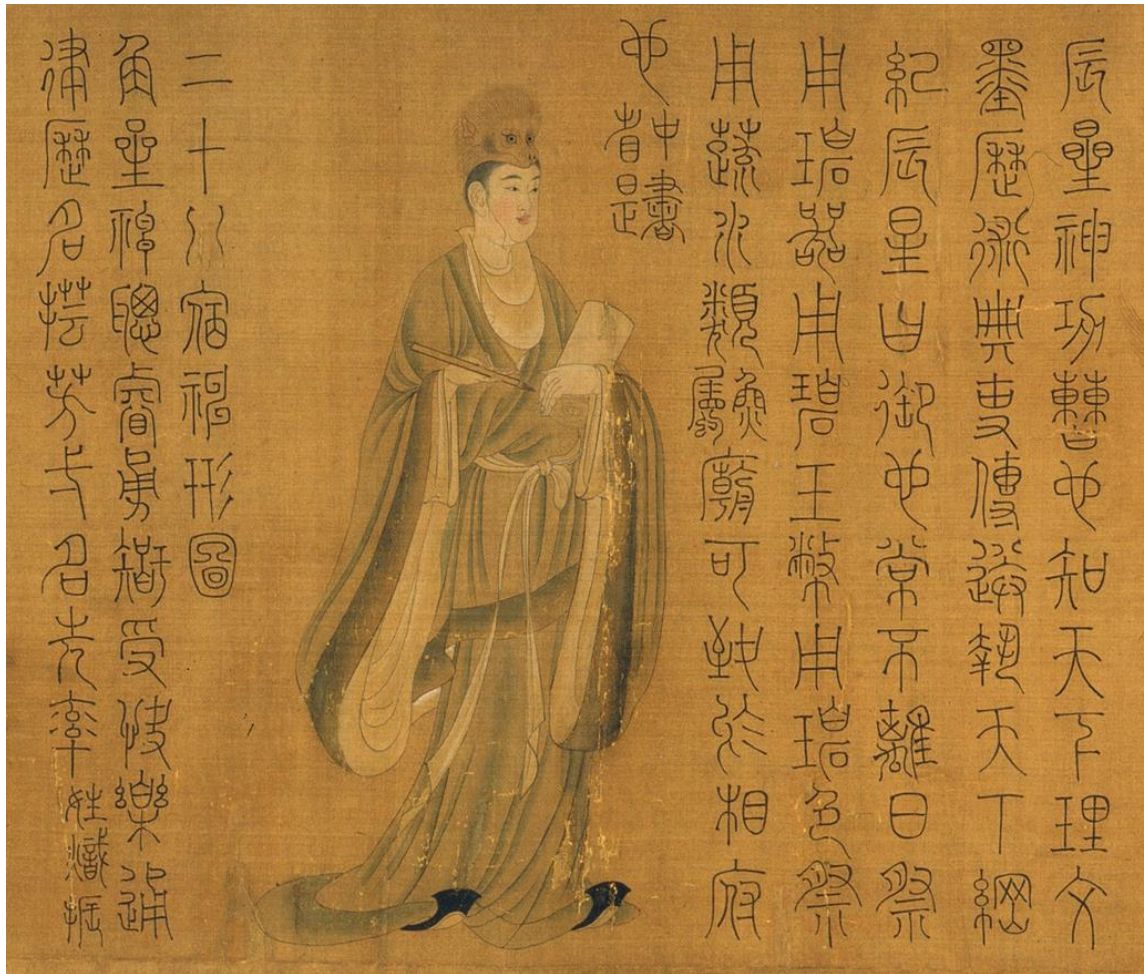 辰星神功曹也知天下理文
墨歷術典吏傳送執天下綱
紀辰星日御也常不離日祭
用碧器用碧玉幣用碧色祭
用蔬水類魚屬廟可致於相府
也
中書
省是
二十八宿神形圖
角星神聰睿勇受快樂通
律歷名芳名光率姓熾振